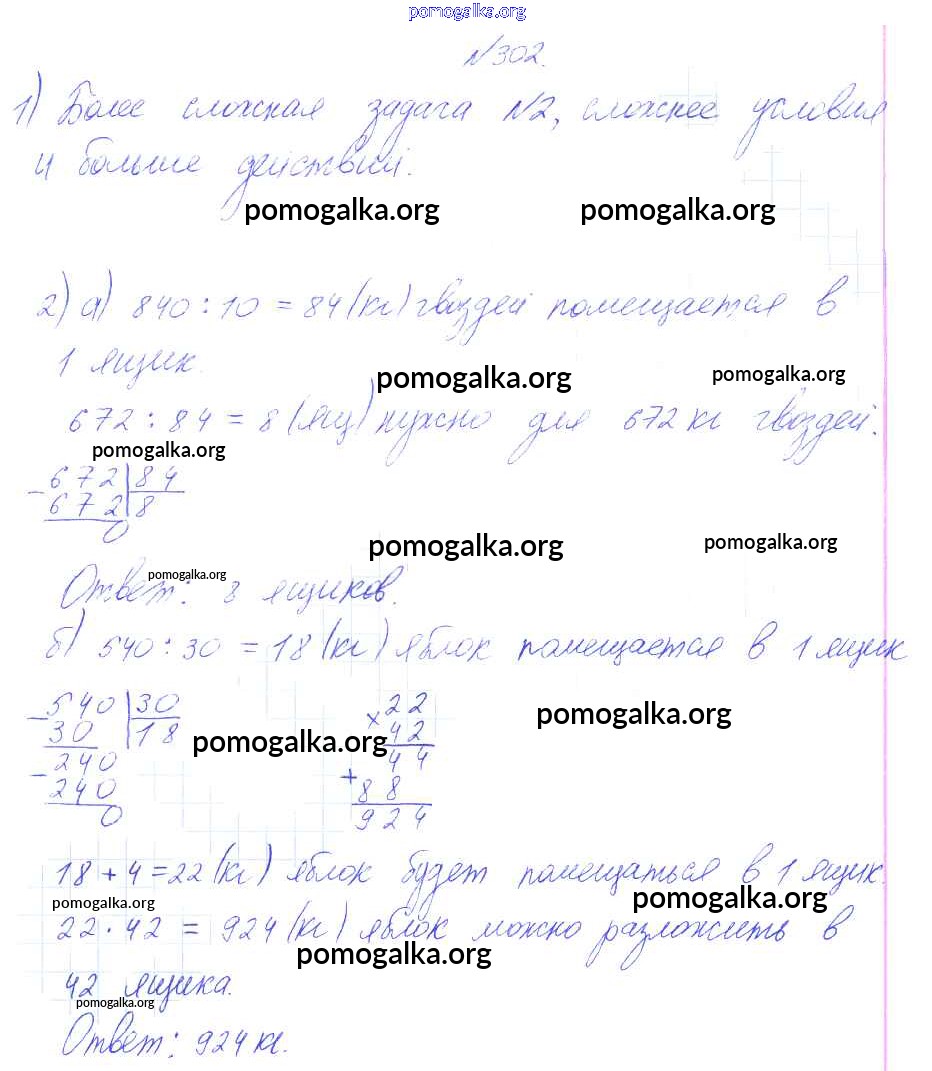 pomogalka.org
№302.
1) Более сложная задача №2, сложнее условия
и больше действий.
pomogalka.org pomogalka.org
2) а) 840 : 10 = 84 (кг) гвоздей помещается в
1 ящик.
pomogalka.org pomogalka.org
672 : 84 = 8 (ящ) нужно для 672 кг гвоздей.
pomogalka.org
- 672 | 84
672 | 8
0
pomogalka.org pomogalka.org
pomogalka.org
Ответ: 8 ящиков.
б) 540 : 30 = 18 (кг) яблок помещается в 1 ящик
- 540 | 30
30 | 18
- 240
240
0
× 22
42
44
+ 88
924
pomogalka.org pomogalka.org
18 + 4 = 22 (кг) яблок будет помещаться в 1 ящик.
pomogalka.org pomogalka.org
22 · 42 = 924 (кг) яблок можно разложить в
pomogalka.org
42 ящика.
pomogalka.org
Ответ: 924 кг.